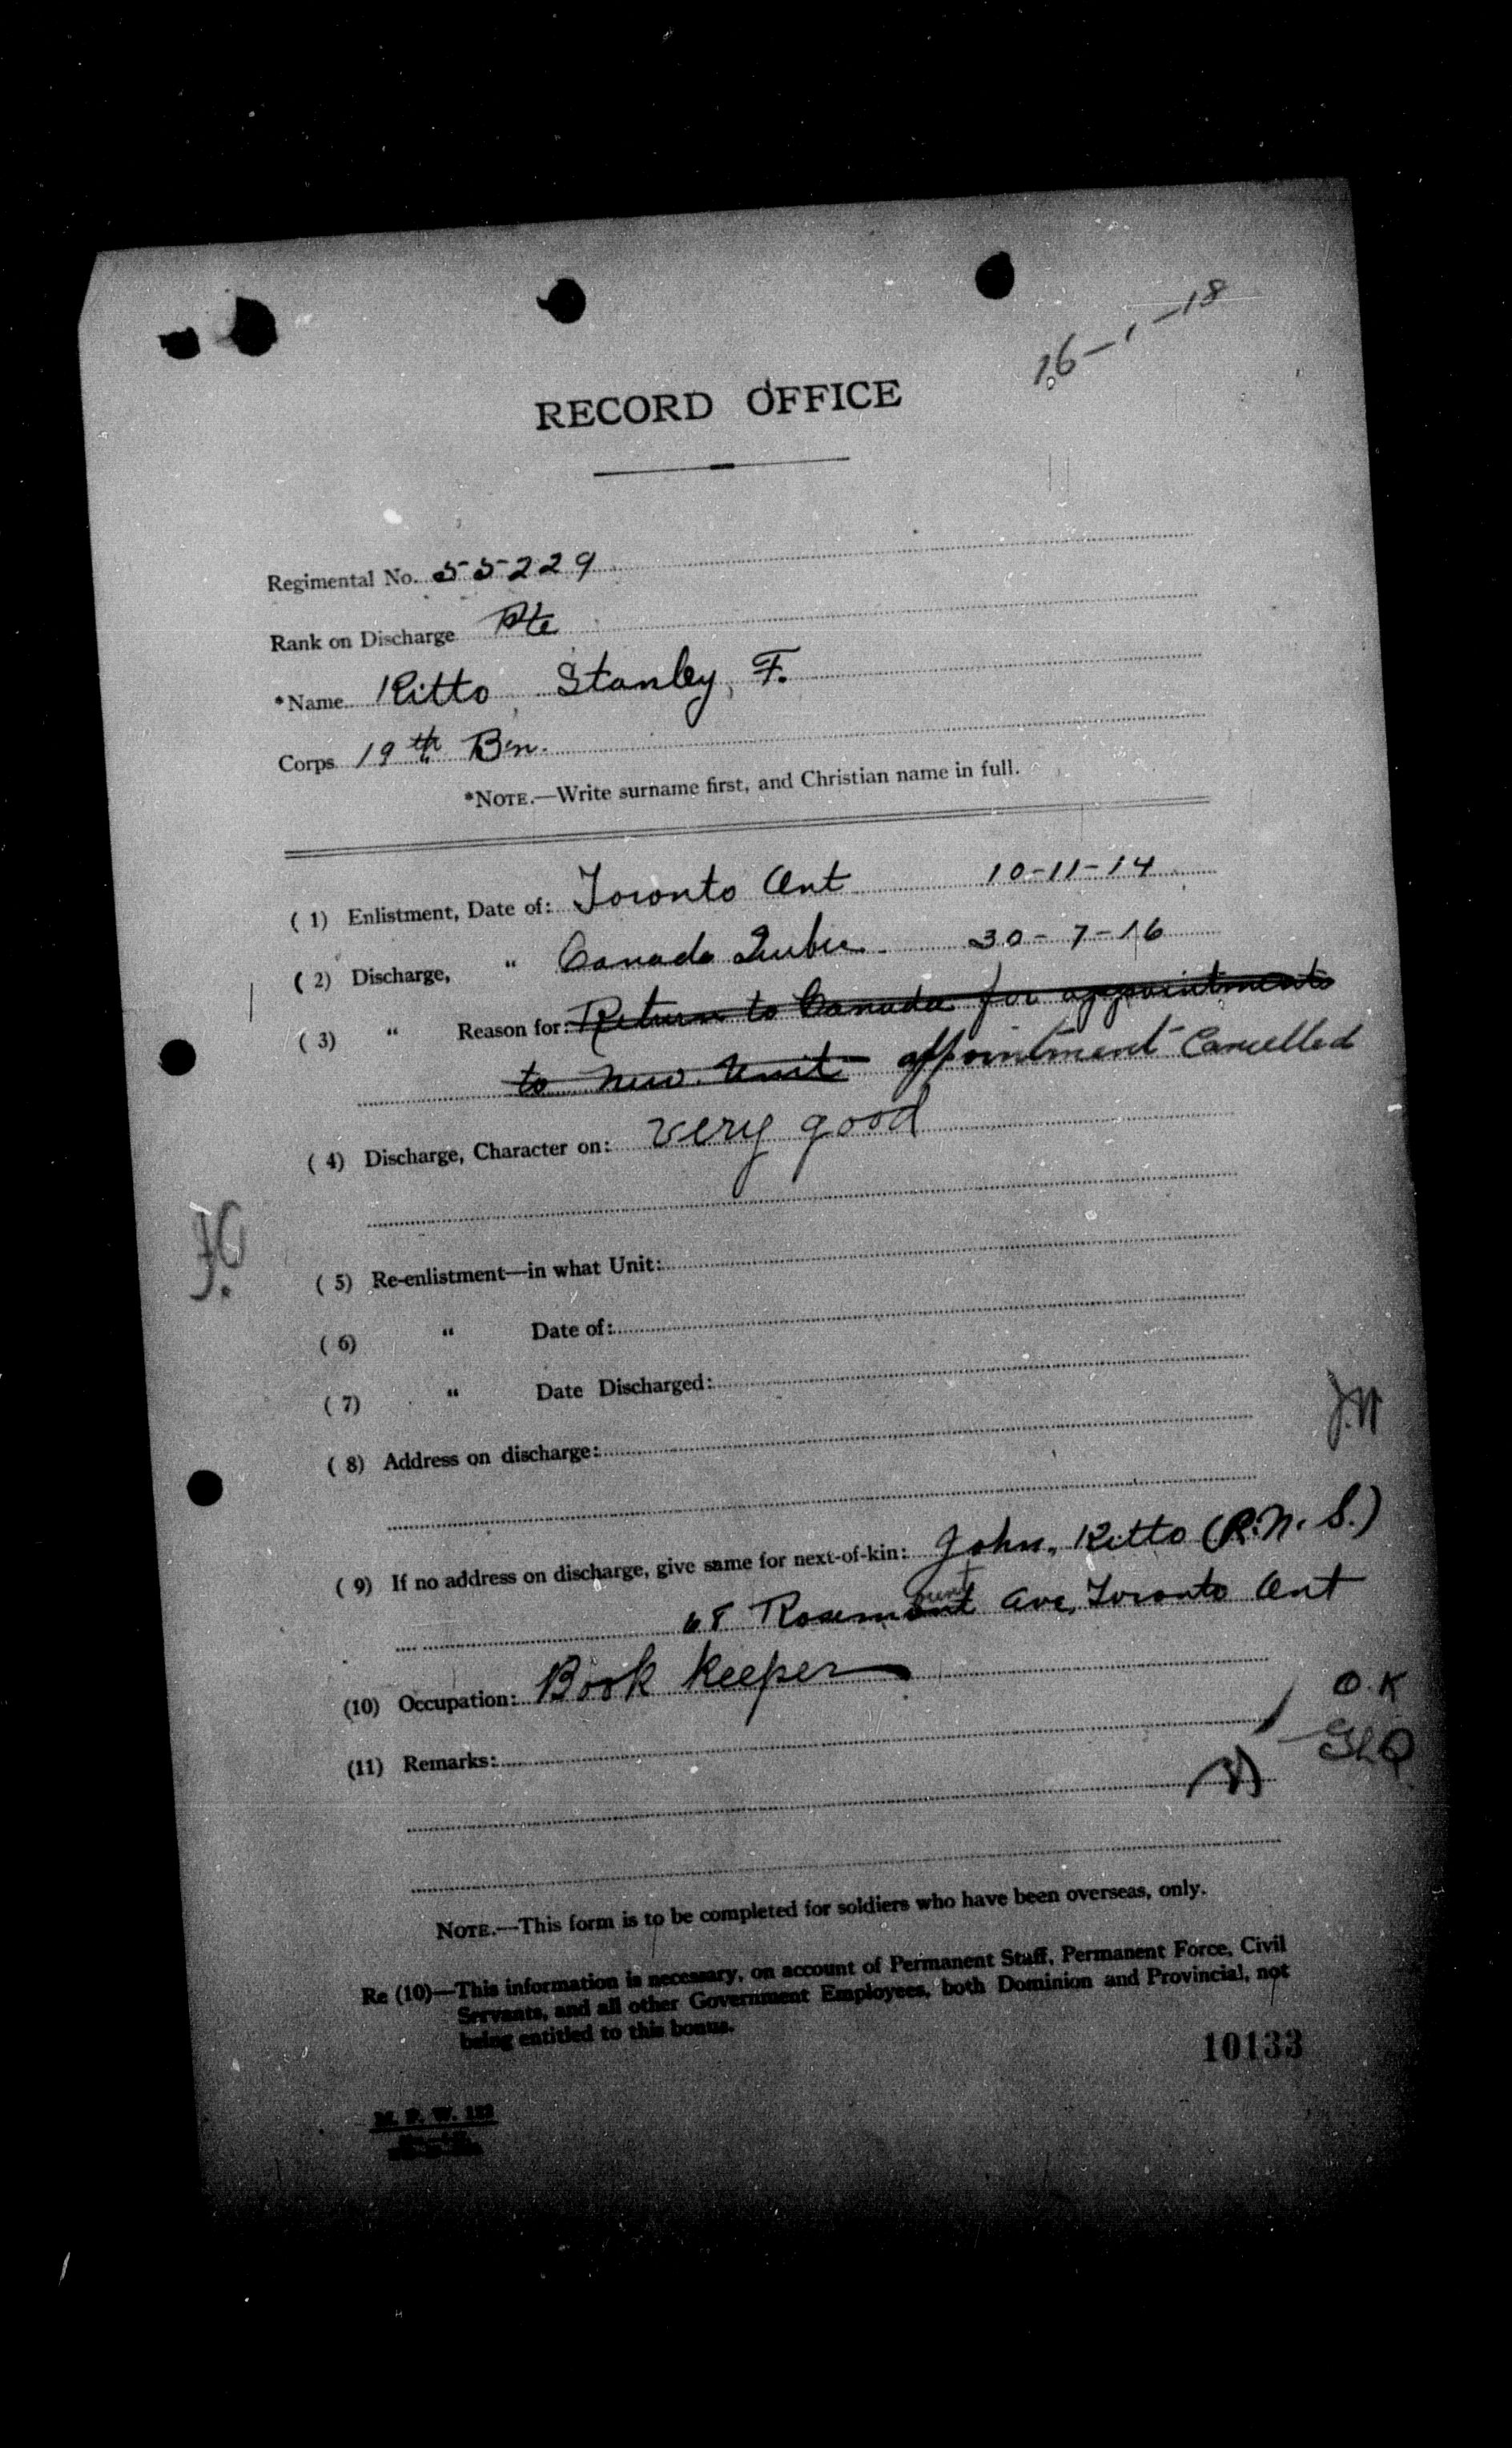 16-1-18
RECORD OFFICE
Regimental No. 55229
Rank on Discharge Pte
*Name Ritto, Stanley, F.
Corps 19th Bn.
*NOTE.—Write surname first, and Christian name in full.
( 1) Enlistment, Date of: Toronto Ont 10-11-14
( 2) Discharge, " Canada Quebec 30-7-16
( 3) " Reason for: Return to Canada for appointment
to New Unit appointment Cancelled
( 4) Discharge, Character on: very good
( 5) Re-enlistment—in what Unit:
( 6) " Date of:
( 7) " Date Discharged:
( 8) Address on discharge:
( 9) If no address on discharge, give same for next-of-kin: John, Ritto (R.N.S.)
68 Rosemount Ave, Toronto Ont
(10) Occupation: Book Keeper
O.K
(11) Remarks:
NOTE.—This form is to be completed for soldiers who have been overseas, only.
Re (10)—This information is necessary, on account of Permanent Staff, Permanent Force, Civil
Servants, and all other Government Employees, both Dominion and Provincial, not
being entitled to this bonus.
10133
M. F. W. 122